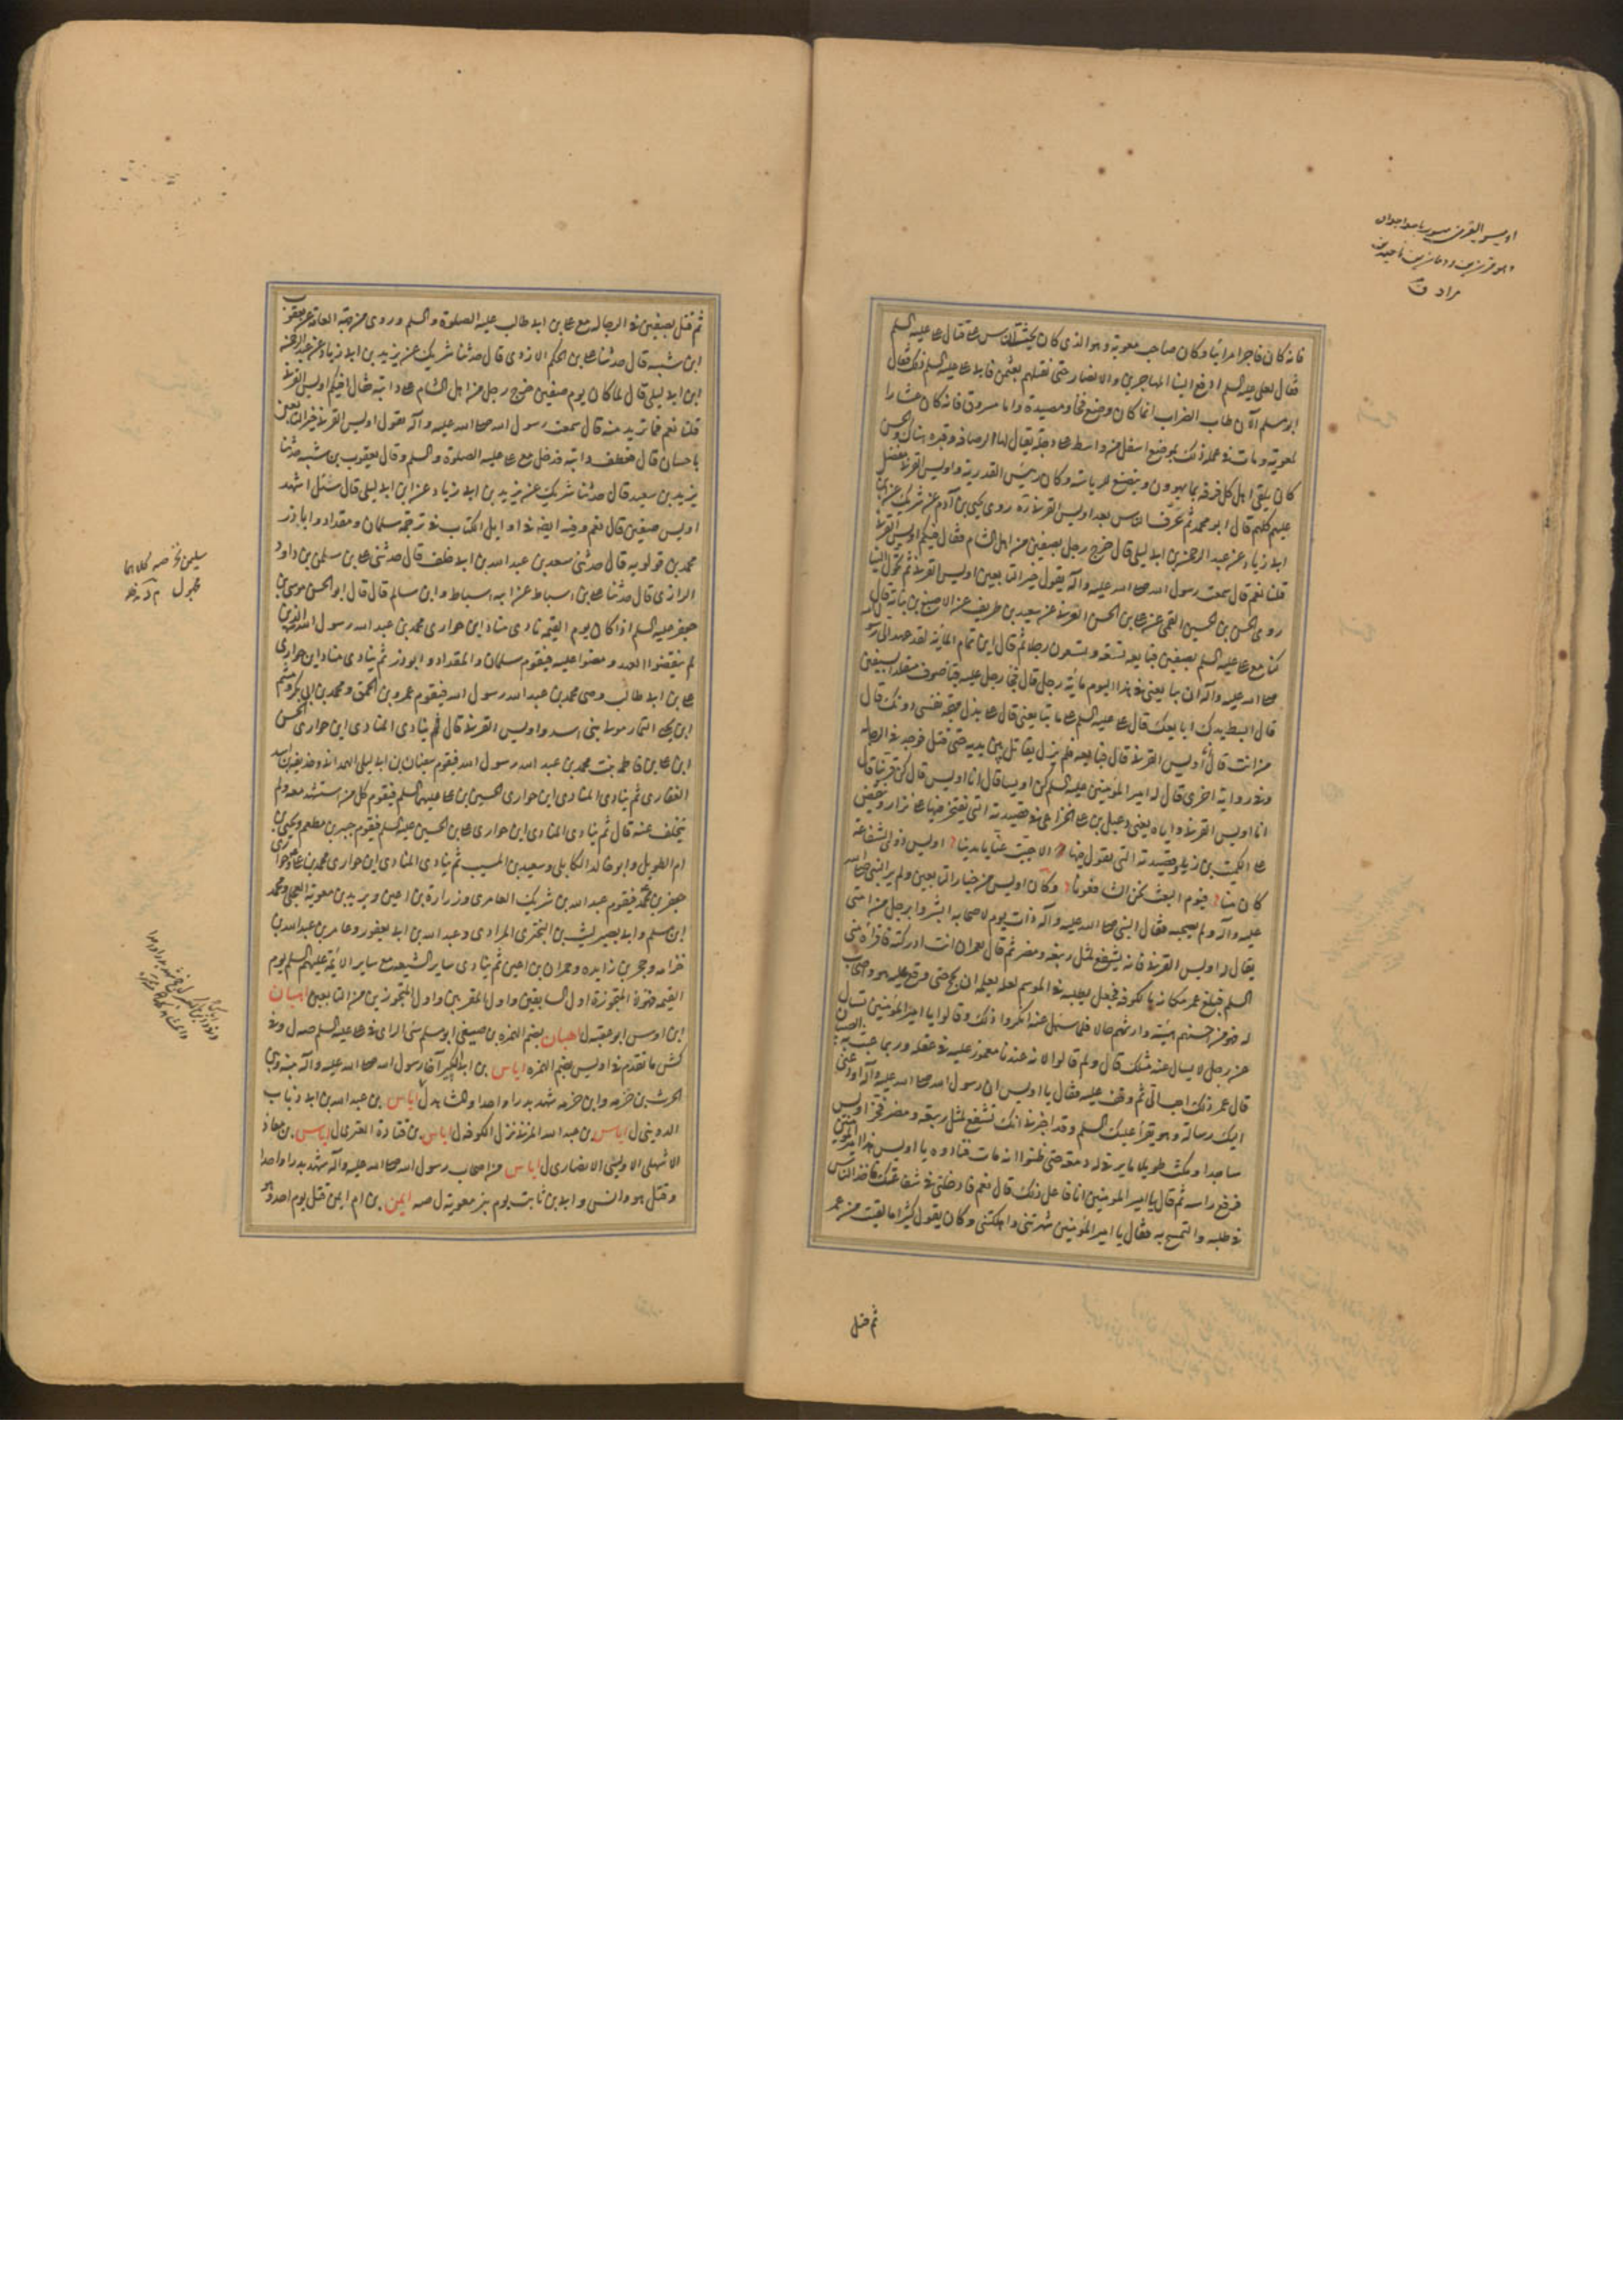 فانه كان فاجرا مرائيا وكان صاحب معوية وهو الذي كان يحث الناس على قتال علي عليه السلم
فقال لعلي عليه السلم ادفع الينا المهاجرين والانصار حتى نقتلهم بعثمن فابى علي عليه السلم ذلك فقال
ابو مسلم الآن طاب الضراب انما كان وضع فخا ومصيدة واما مسروق فانه كان عشارا
لمعوية ومات في عمله ذلك بموضع اسفل من واسط على دجلة يقال لها الرصافه وقبره هناك والحسن
كان يلقى اهل كل فرقه بما يهوون ويتصنع للرياسة وكان رئيس القدرية واويس القرني مفضل
عليهم كلهم قال ابو محمد ثم عرف الناس بعد اويس القرني ره روى يحيى بن آدم عن شريك عن
ابي زياد عن عبد الرحمن بن ابي ليلى قال خرج رجل بصفين من اهل الشام فقال فيكم اويس القرني
قلنا نعم قال سمعت رسول الله صلى الله عليه وآله يقول خير التابعين اويس القرني ثم تحول الينا
روى الحسن بن الحسين القمي عن علي بن الحسن القرني عن سعيد بن طريف عن الاصبغ بن نباتة قال
كنا مع علي عليه السلم بصفين فبايعه تسعة وتسعون رجلا ثم قال اين تمام المائة لقد عهد الى رسول
صلى الله عليه وآله ان يبايعني في هذا اليوم مائة رجل قال فجا رجل عليه قبا صوف متقلد السيفين
قال ابسط يدك ابايعك قال علي عليه السلم على ما تبايعني قال على بذل مهجة نفسي دونك قال
من انت قال اويس القرني قال فبايعه فلم يزل يقاتل بين يديه حتى قتل فوجد في الرجاله
وفي رواية اخرى قال له امير المؤمنين عليه السلم كن اويسا قال انا اويس قال كن قرنيا قال
انا اويس القرني واياه يعني دعبل بن علي الخزاعي في قصيدته التي يفتخر فيها على نزار وينقض
على الكميت بن زيد وقصيدته التي يقول فيها الا حييت عنا يا مدينا اويس ذو الشفاعة
كان منا فيوم البعث نحن الشافعونا وكان اويس من خيار التابعين ولم ير النبي صلى الله
عليه وآله ولم يصحبه فقال النبي صلى الله عليه وآله ذات يوم لاصحابه ابشروا برجل من امتي
يقال له اويس القرني فانه يشفع لمثل ربيعه ومضر ثم قال لعمر ان انت ادركته فاقرأه مني
السلم فبلغ عمر مكانه بالكوفه فجعل يطلبه في الموسم لعله يعلم ان يحج حتى وقع عليه هو واصحاب
له هو من احسنهم هيئة وارثهم حالا فلما سئل عنه انكروا ذلك وقالوا يا امير المؤمنين تسأل
عن رجل لا يسال عنه مثلك قال ولم قالوا لانه عندنا مغموز عليه في عقله وربما عبث به الصبيان
قال عمر ذلك احب الي ثم وقف عليه فقال يا اويس ان رسول الله صلى الله عليه وآله اودعني
اليك رسالة وهو يقرأ عليك السلم وقد اخبرني انك تشفع لمثل ربيعه ومضر فخر اويس
ساجدا ومكث طويلا ما يرى له دمعة حتى ظنوا انه مات فنادوه يا اويس هذا امير المؤمنين
فرفع راسه ثم قال يا امير المومنين افاعل ذلك قال نعم فادخلني في شفاعتك فاخذ الناس
في طلبه والتمسح به فقال يا امير المؤمنين شهرتني واهلكتني وكان يقول كثيرا ما لقيت من عمر
ثم قتل
ثم قتل بصفين في الرجاله مع علي بن ابي طالب عليه الصلوة والسلم وروى من جهة العامة عن يعقوب
ابن شيبه قال حدثنا علي بن الحكم الازدي قال حدثنا شريك عن يزيد بن ابي زياد عن عبد الرحمن
ابن ابي ليلى قال لما كان يوم صفين خرج رجل من اهل الشام على دابته فقال افيكم اويس القرني
قلنا نعم فما تريد منه قال سمعت رسول الله صلى الله عليه وآله يقول اويس القرني خير التابعين
باحسان قال فعطف دابته فدخل مع علي عليه الصلوة والسلم وقال يعقوب بن شيبه حدثنا
يزيد بن سعيد قال حدثنا شريك عن يزيد بن ابي زياد عن ابن ابي ليلى قال سئل اشهد
اويس صفين قال نعم وفيه ايضه في اوايل الكتاب في ترجمة سلمان ومقداد واباذر
محمد بن قولويه قال حدثني سعد بن عبد الله بن ابي خلف قال حدثني علي بن سليمن بن داود
الرازي قال حدثنا علي بن اسباط عن ابيه اسباط وابن سالم قال قال ابو الحسن موسى بن
جعفر عليه السلم اذا كان يوم القيمه نادى مناد اين حواري محمد بن عبد الله رسول الله الذين
لم ينقضوا العهد ومضوا عليه فيقوم سلمان والمقداد وابوذر ثم ينادي مناد اين حواري
علي بن ابي طالب وصي محمد بن عبد الله رسول الله فيقوم عمرو بن الحمق ومحمد بن ابي بكر وميثم
ابن يحيى التمار مولى بني اسد واويس القرني قال ثم ينادي المنادي اين حواري الحسن
ابن علي بن فاطمه بنت محمد بن عبد الله رسول الله فيقوم سفيان بن ابي ليلى الهمداني وحذيفه بن اسد
الغفاري ثم ينادي المنادي اين حواري الحسين بن علي عليهما السلم فيقوم كل من استشهد معه ولم
يتخلف عنه قال ثم ينادي المنادي اين حواري علي بن الحسين عليه السلم فيقوم جبير بن مطعم ويحيى بن
ام الطويل وابو خالد الكابلي وسعيد بن المسيب ثم ينادي المنادي اين حواري محمد بن علي وحواري
جعفر بن محمد فيقوم عبد الله بن شريك العامري وزرارة بن اعين وبريد بن معوية العجلي ومحمد
ابن مسلم وابو بصير ليث بن البختري المرادي وعبد الله بن ابي يعفور وعامر بن عبد الله بن
خزاعه وحجر بن زايده وحمران بن اعين ثم ينادي ساير الشيعه مع ساير الائمة عليهم السلم يوم
القيمه فهؤلاء المتحورة اول السابقين واول المقربين واول المتحورين من التابعين اهبان
ابن اوس ابو عقبه ل اهبان بضم الهمزه بن صيفي ابو مسلم سئ الراي في علي عليه السلم صه ل وفي
كش ما تقدم في اويس بضم الهمزه اياس بن ابي البكير آخا رسول الله صلى الله عليه وآله بينه وبين
الحرث بن خزمه وابن خزمه شهد بدرا واحدا والمشاهد ل اياس بن عبد الله بن ابي ذباب
الدوسي ل اياس بن عبد الله المزني نزل الكوفه ل اياس بن قتادة العنبري ل اياس بن معاذ
الاشهلي الاوسي الانصاري ل اياس من اصحاب رسول الله صلى الله عليه وآله شهد بدرا واحدا
وقتل هو وانس وابي بن ثابت يوم بئر معونة ل صه ايمن بن ام ايمن قتل يوم احد وهو